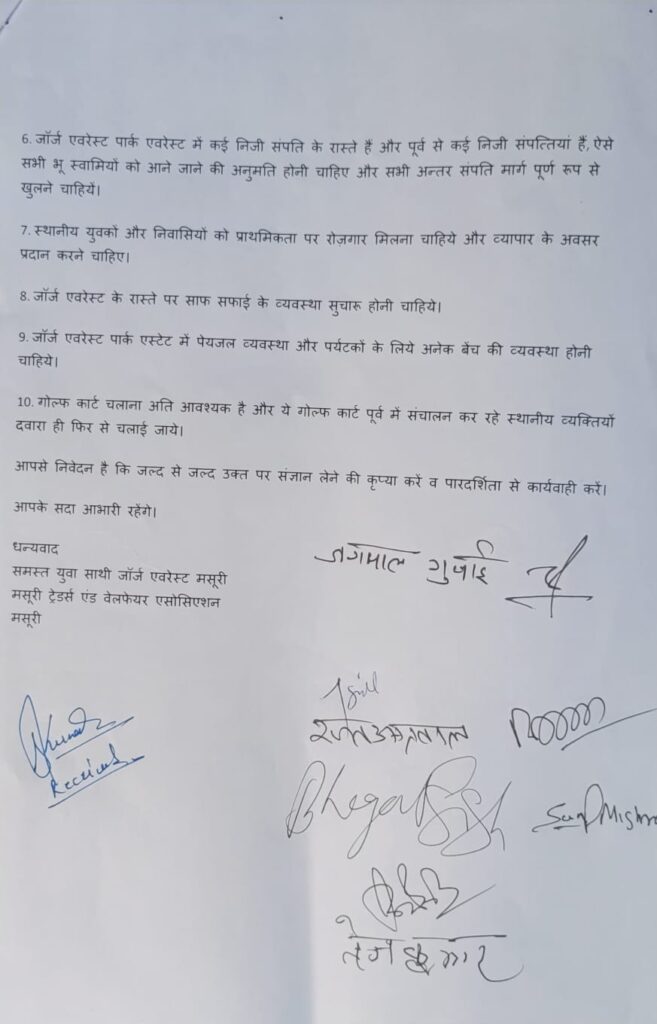 6. जॉर्ज एवरेस्ट पार्क एवरेस्ट में कई निजी संपति के रास्ते हैं और पूर्व से कई निजी संपत्तियां हैं, ऐसे
सभी भू स्वामियों को आने जाने की अनुमति होनी चाहिए और सभी अन्तर संपति मार्ग पूर्ण रूप से
खुलने चाहियें।
7. स्थानीय युवकों और निवासियों को प्राथमिकता पर रोज़गार मिलना चाहिये और व्यापार के अवसर
प्रदान करने चाहिए।
8. जॉर्ज एवरेस्ट के रास्ते पर साफ सफाई के व्यवस्था सुचारू होनी चाहिये।
9. जॉर्ज एवरेस्ट पार्क एस्टेट में पेयजल व्यवस्था और पर्यटकों के लिये अनेक बेंच की व्यवस्था होनी
चाहिये।
10. गोल्फ कार्ट चलाना अति आवश्यक है और ये गोल्फ कार्ट पूर्व में संचालन कर रहे स्थानीय व्यक्तियों
दवारा ही फिर से चलाई जाये।
आपसे निवेदन है कि जल्द से जल्द उक्त पर संज्ञान लेने की कृप्या करें व पारदर्शिता से कार्यवाही करें।
आपके सदा आभारी रहेंगे।
धन्यवाद
समस्त युवा साथी जॉर्ज एवरेस्ट मसूरी
मसूरी ट्रेडर्स एंड वेलफेयर एसोसिएशन
मसूरी
जगपाल गुसांई
Received
तेज कुमार